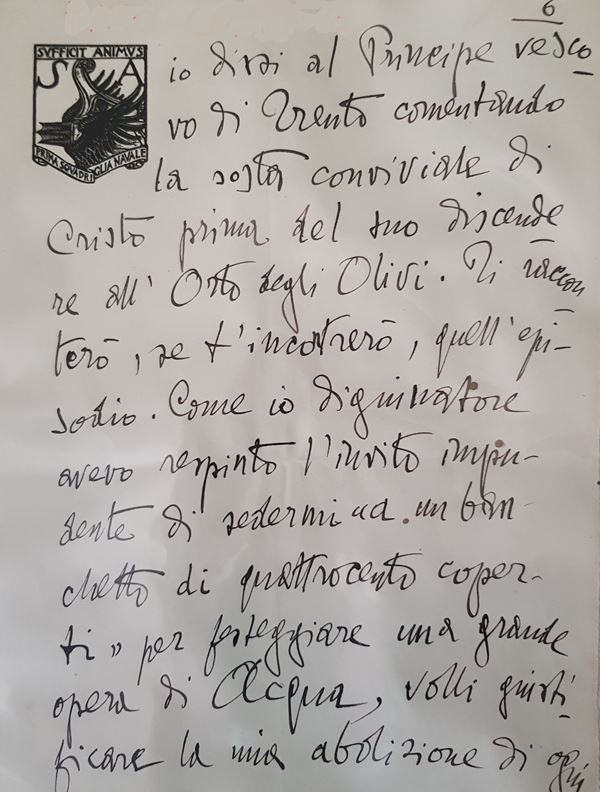 6
SVFFICIT ANIMVS
S A
PRIMA SQVADRIGLIA NAVALE
io dissi al Principe vesco
vo di Trento comentando
la sosta conviviale di
Cristo prima del suo discende
re all' Orto degli Olivi. Ti raccon
terò, se t'incontrerò, quell'epi-
sodio. Come io digiunatore
avevo respinto l'invito impu-
dente di sedermi "a un ban-
chetto di quattrocento coper-
ti" per festeggiare una grande
opera di Acqua, volli giusti
ficare la mia abolizione di ogni